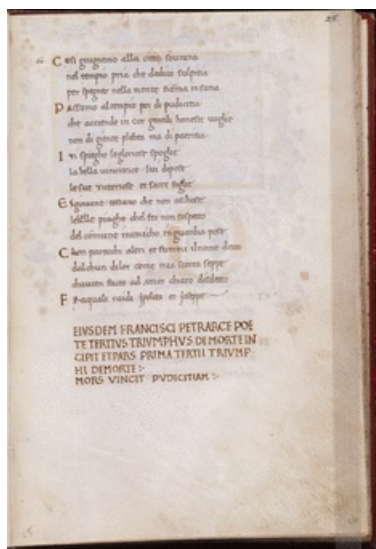 26
Cosi giugnemo alla citta soprana
nel tempio pria che dedico sulpitia
per spegner nella mente fiamma insana
Passamo al tempio poi di pudicitia
che accende in cor gentil honeste voglie
non di gente plebea ma di patritia
Ivi spiegho le gloriose spoglie
la bella vincitrice ivi depose
le sue victoriose et sacre foglie
El giovane toscano che non ascose
le belle piaghe chel fer non suspecto
del comune nemicho in guardia pose
Chon parecchi altri et fummi il nome decto
dalchun di lor come mia scorta seppe
chavien facto ad amor chiaro disdecto
Fra quali vidi ypolito et joseppe
EIVSDEM FRANCISCI PETRARCE POE
TE TERTIVS TRIVMPHVS DE MORTE IN
CIPIT ET PARS PRIMA TERTII TRIVMP
HI DEMORTE :-
MORS VINCIT PVDICITIAM :-